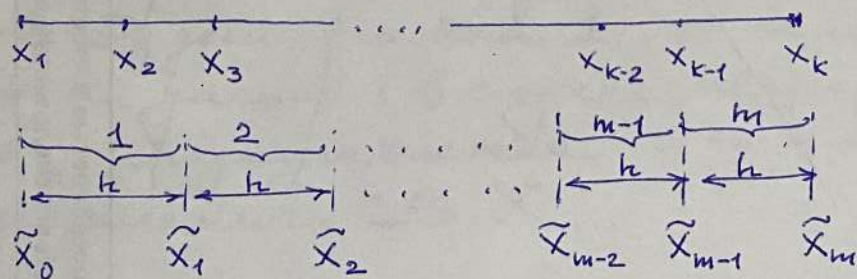 x₁ x₂ x₃ ..... xₖ₋₂ xₖ₋₁ xₖ
1 2 ...... m-1 m
h h ...... h h
x̃₀ x̃₁ x̃₂ x̃ₘ₋₂ x̃ₘ₋₁ x̃ₘ